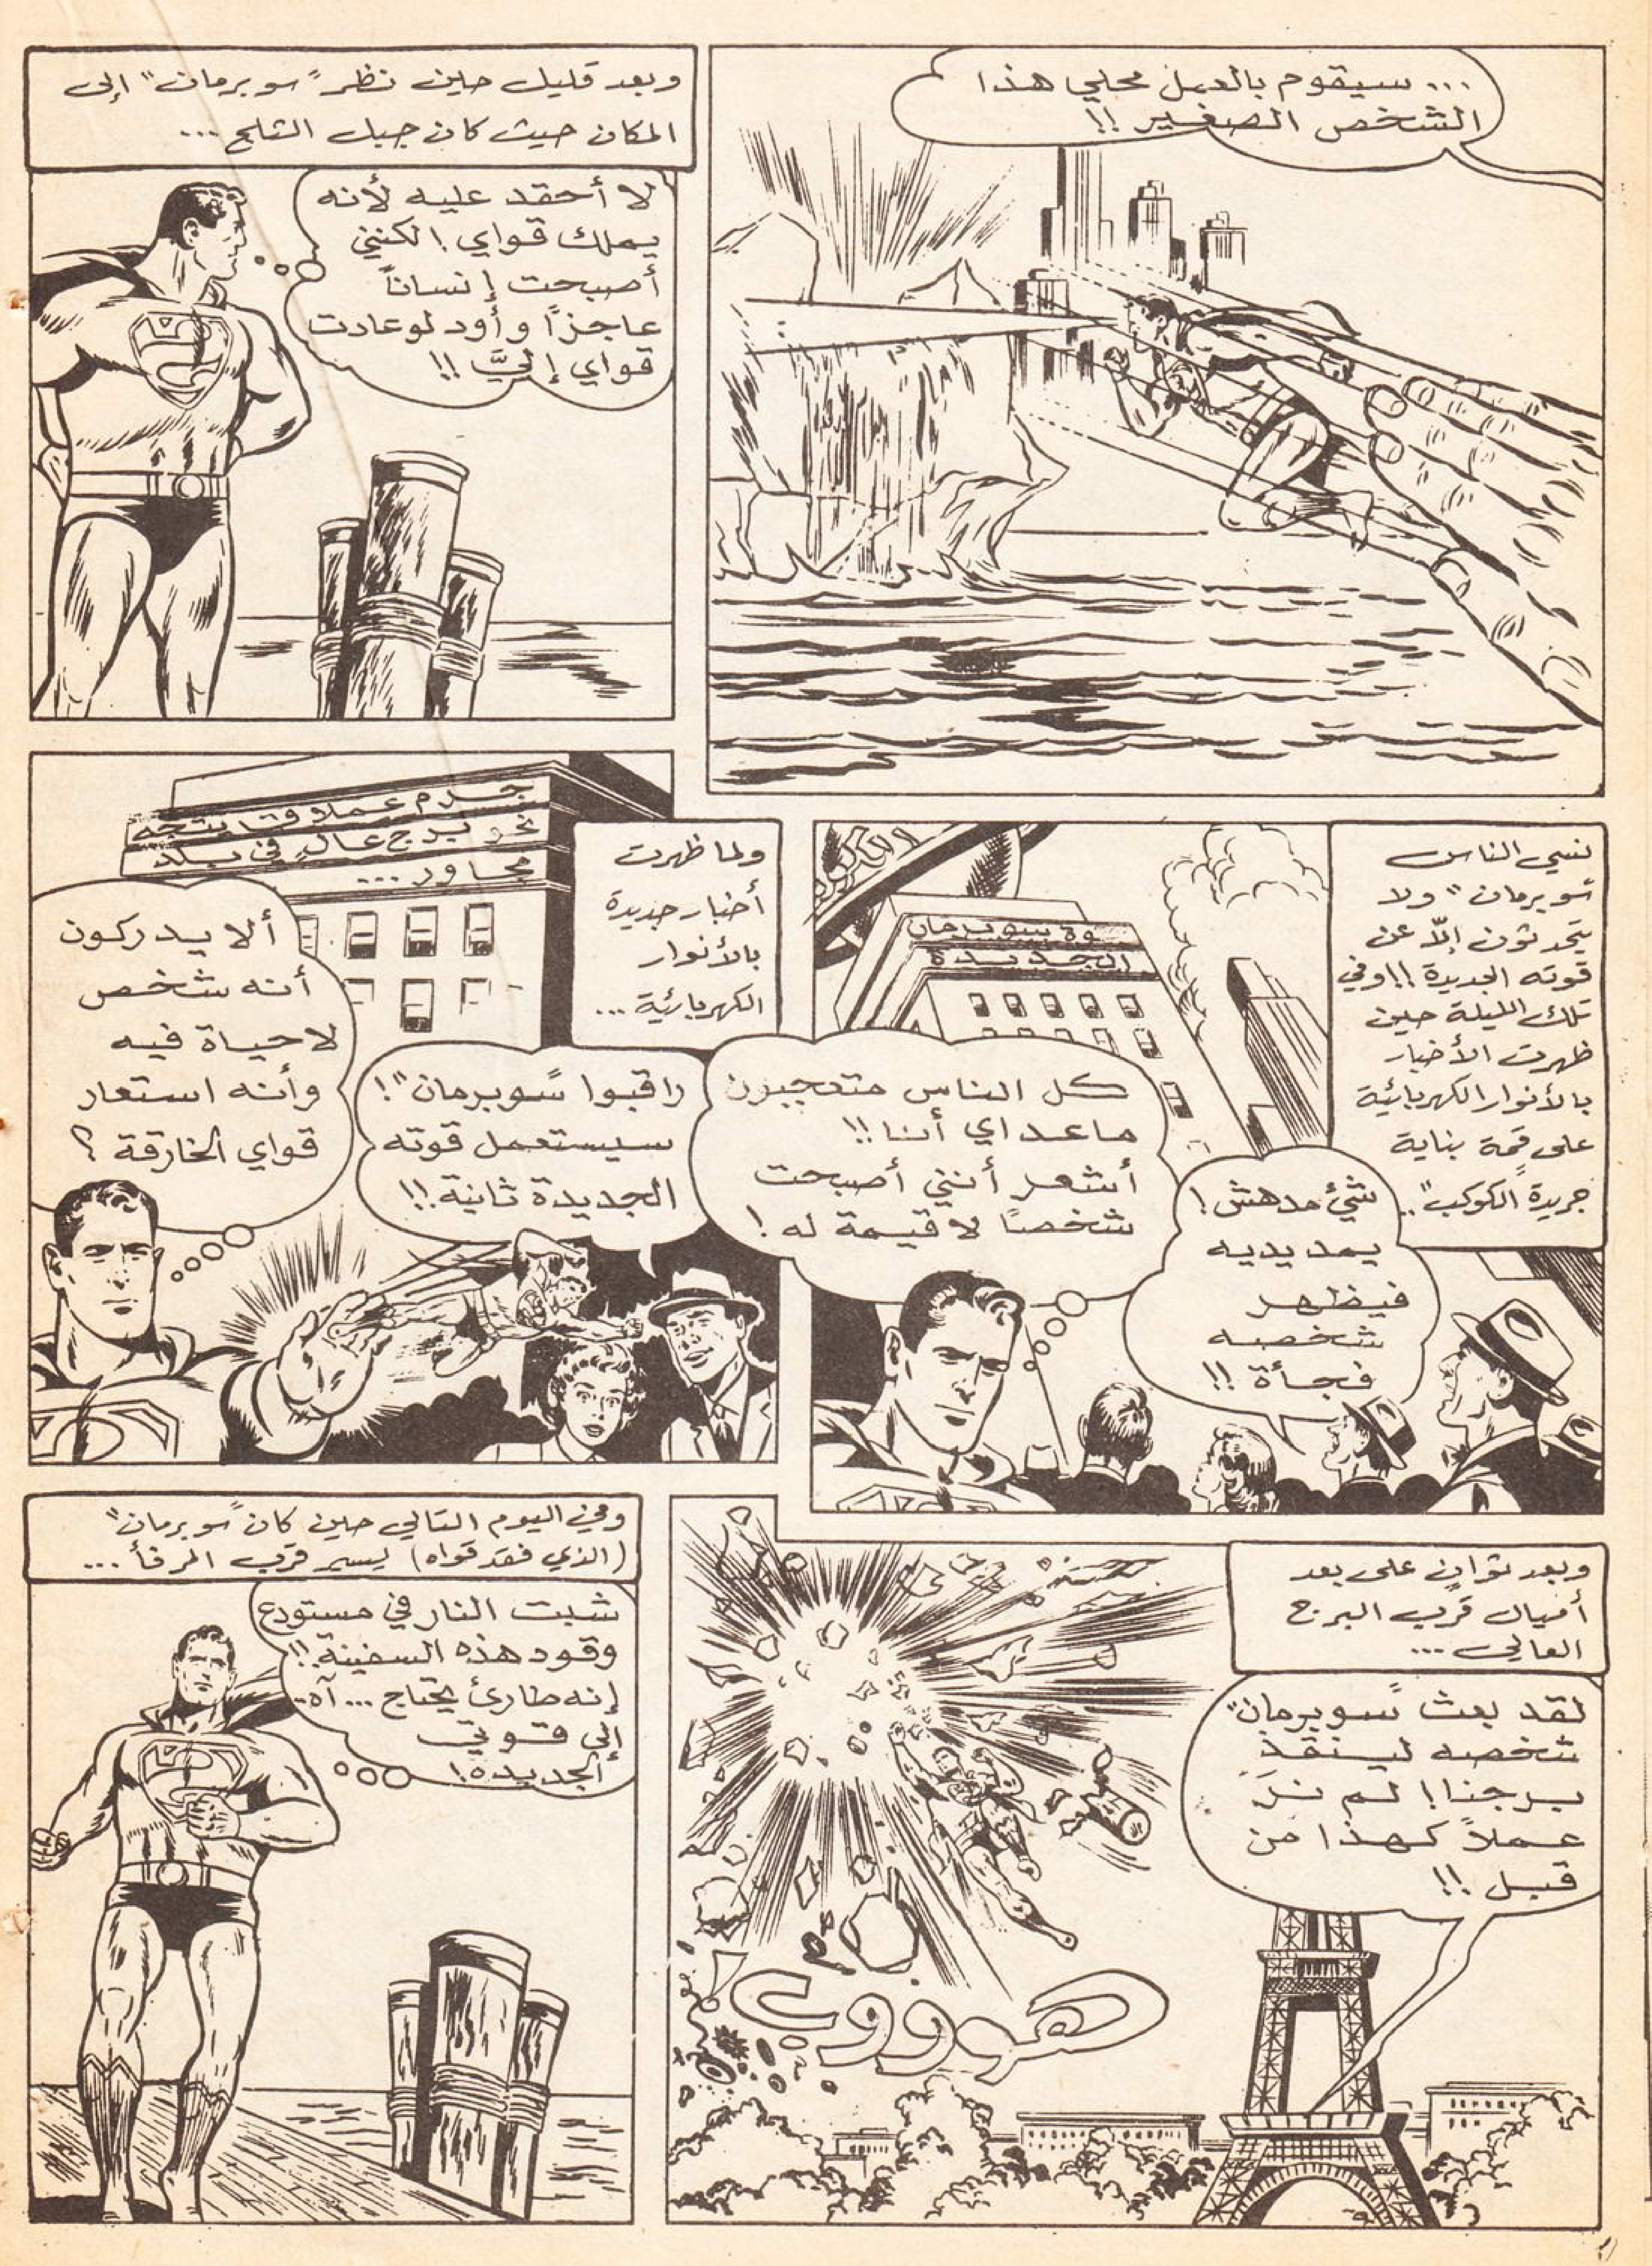 ... سيقوم بالعمل محلي هذا
الشخص الصغير !!
وبعد قليل حين نظر "سوبرمان" إلى
المكان حيث كان جبل الثلج ...
لا أحقد عليه لأنه
يملك قواي ! لكنني
أصبحت إنساناً
عاجزاً وأود لو عادت
قواي إليَّ !!
نسي الناس
"سوبرمان" ولا
يتحدثون إلاّ عن
قوته الجديدة !! وفي
تلك الليلة حين
ظهرت الأخبار
بالأنوار الكهربائية
على قمة بناية
جريدة "الكوكب" ..
وة سوبرمان
الجديدة
شيء مدهش !
يمد يديه
فيظهر
شخصه
فجأة !!
كل الناس متعجبون
ما عداي أنا !!
أشعر أنني أصبحت
شخصاً لا قيمة له !
ولما ظهرت
أخبار جديدة
بالأنوار
الكهربائية ...
جرم عملاق يتجه
نحو برج عالٍ في بلد
مجاور ...
راقبوا "سوبرمان" !
سيستعمل قوته
الجديدة ثانية !!
ألا يدركون
أنه شخص
لا حياة فيه
وأنه استعار
قواي الخارقة ؟
وبعد ثوانٍ على بعد
أميال قرب البرج
العالي ...
لقد بعث "سوبرمان"
شخصه لينقذ
برجنا ! لم نرَ
عملاً كهذا من
قبل !!
هوووب
وفي اليوم التالي حين كان "سوبرمان"
(الذي فقد قواه) يسير قرب المرفأ ...
شبت النار في مستودع
وقود هذه السفينة !!
إنه طارئ يحتاج ... آه ..
إلى قوتي
الجديدة !